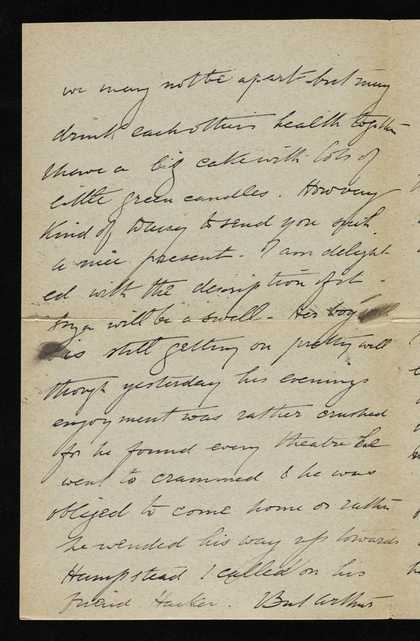 we may not be apart but may
drink each others health together
& have a big cake with lots of
little green candles. How very
kind of Daisy to send you such
a nice present. I am delight-
ed with the description of it -
will be a swell. Her boy
is still getting on pretty well
though yesterday his evenings
enjoyment was rather crushed
for he found every theatre he
went to crammed & he was
obliged to come home or rather
he wended his way up towards
Hampstead & called on his
friend Hacker. But Arthur